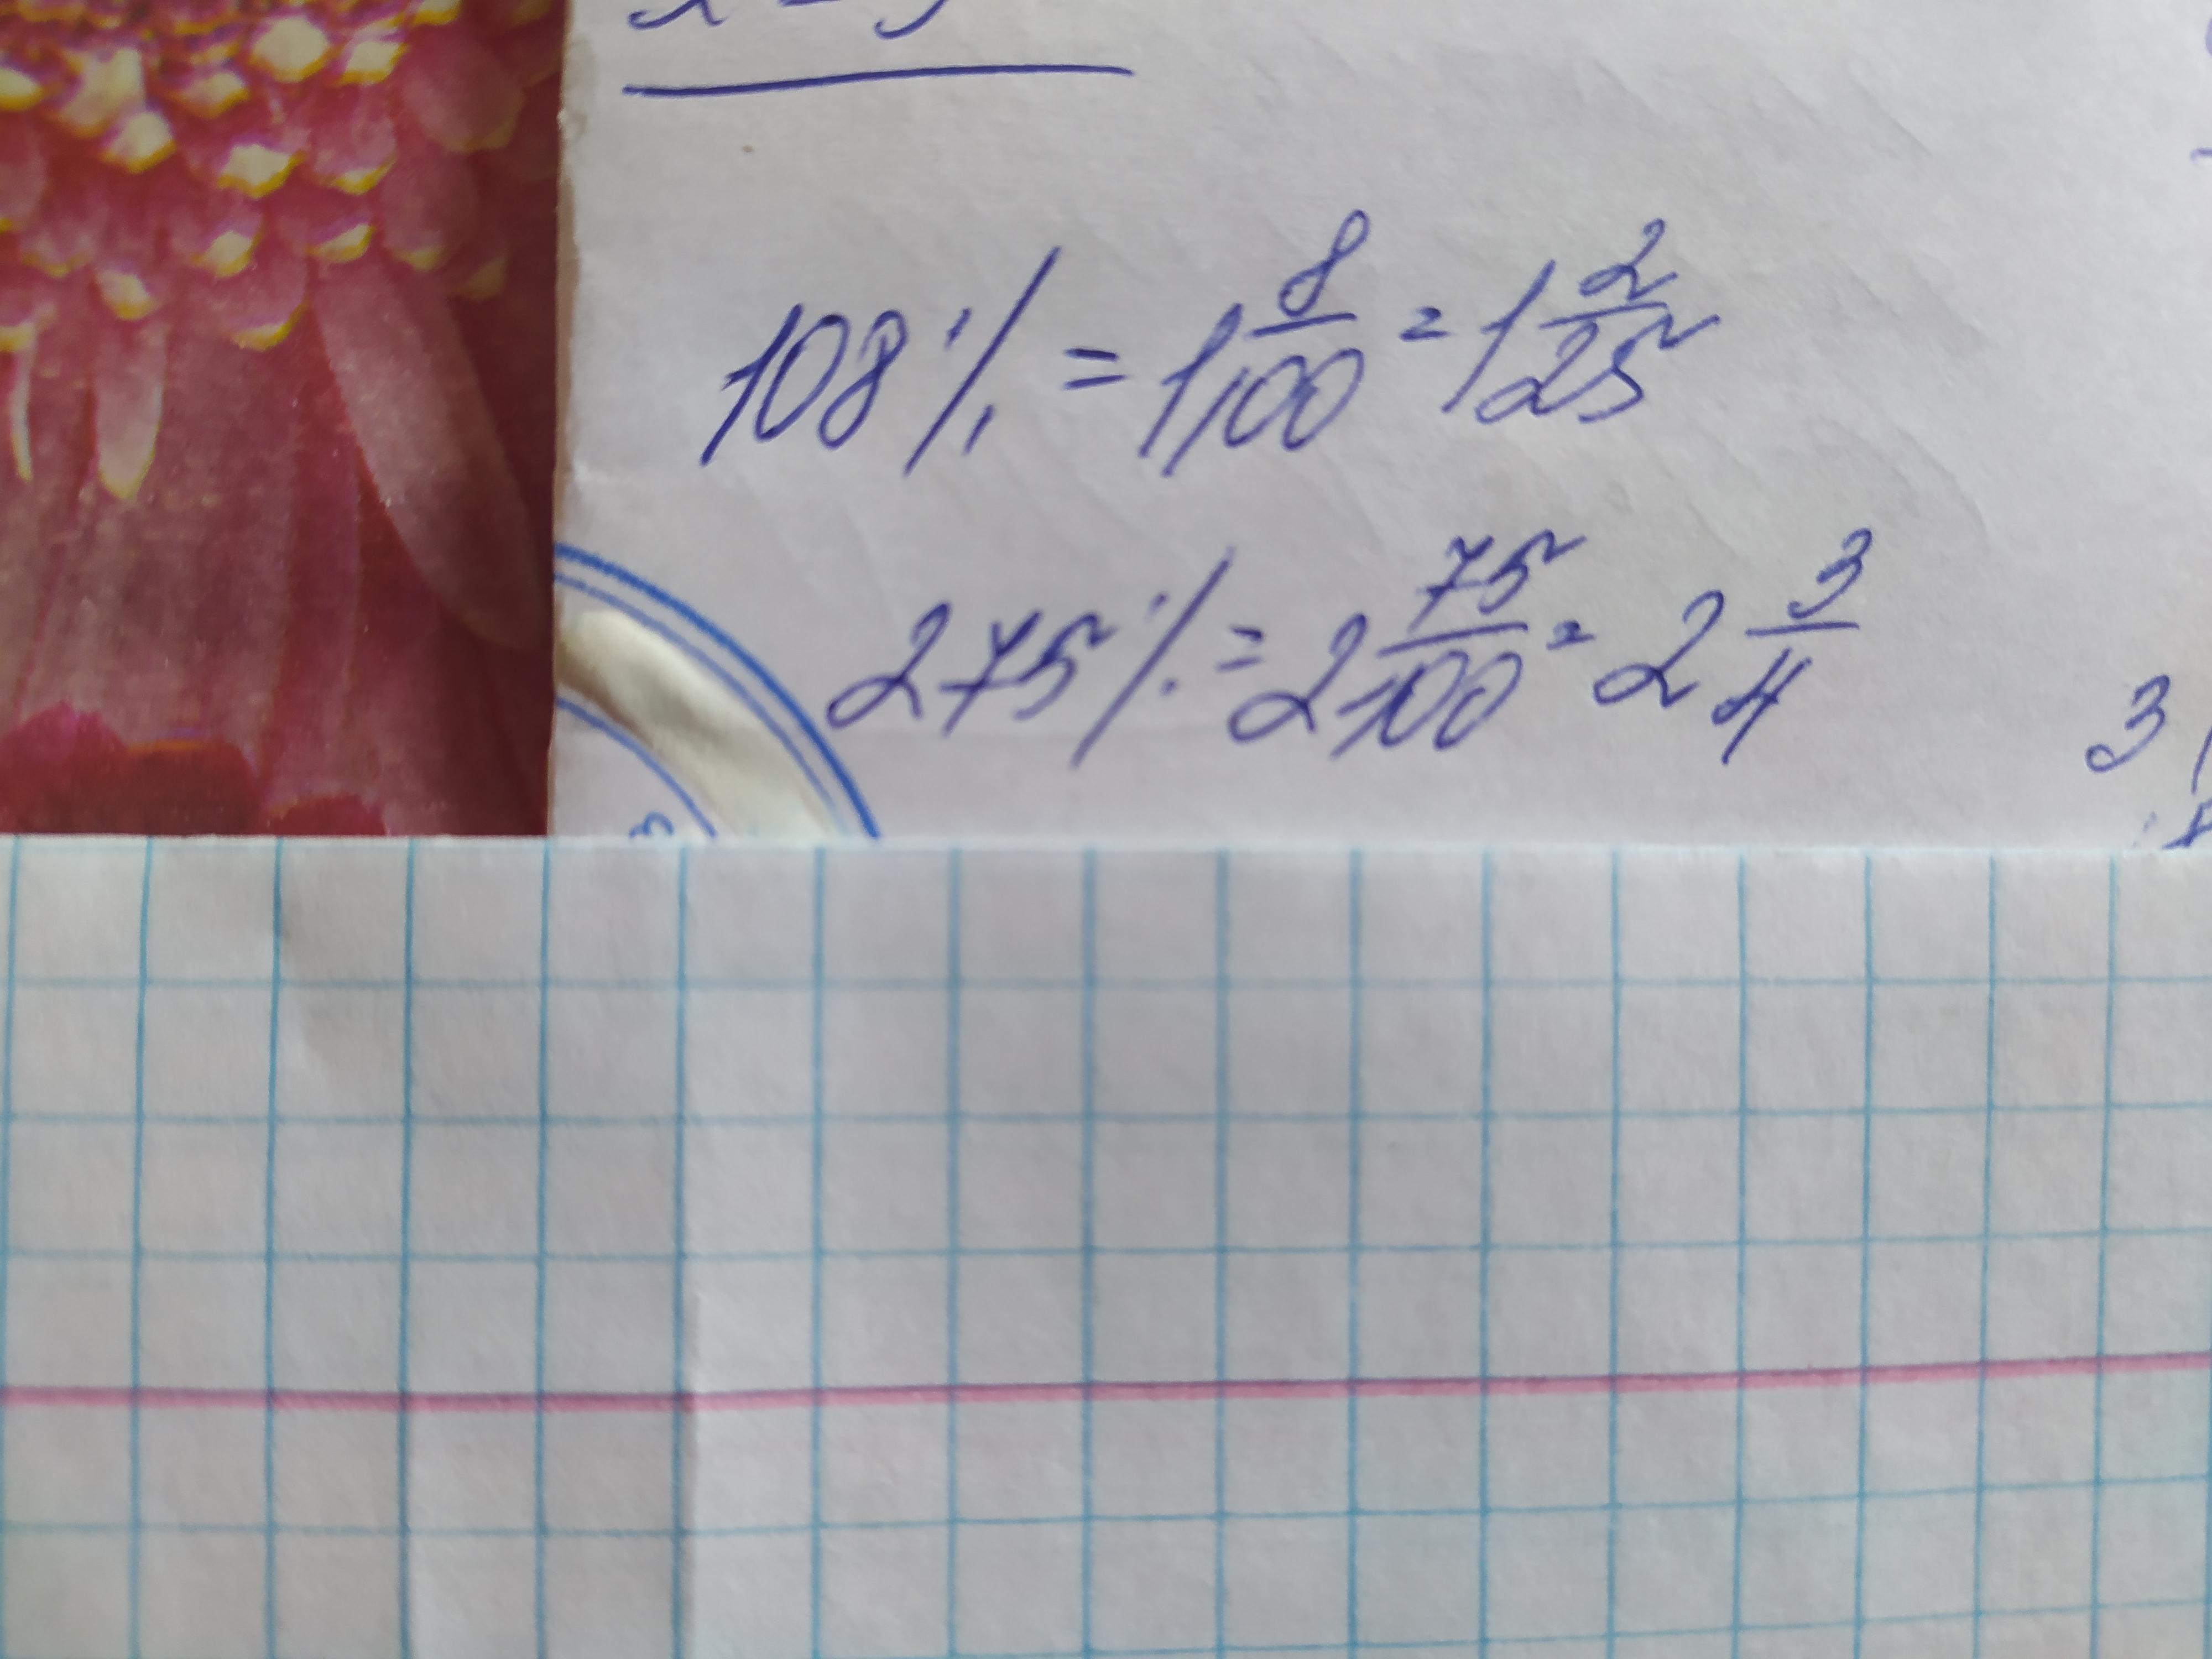 108% = 1 8/100 = 1 2/25
275% = 2 75/100 = 2 3/4
3